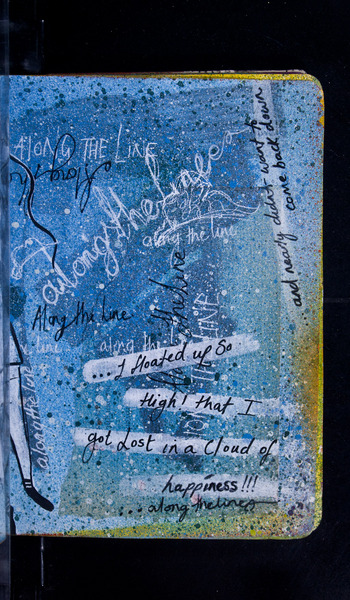 Along The Line
along the line
along the line
and nearly didn't want to
come back down
Along the Line
the line
line
along the
along the line
LINE
... I floated up So
High! that I
got Lost in a Cloud of
happiness!!!
... along the lines